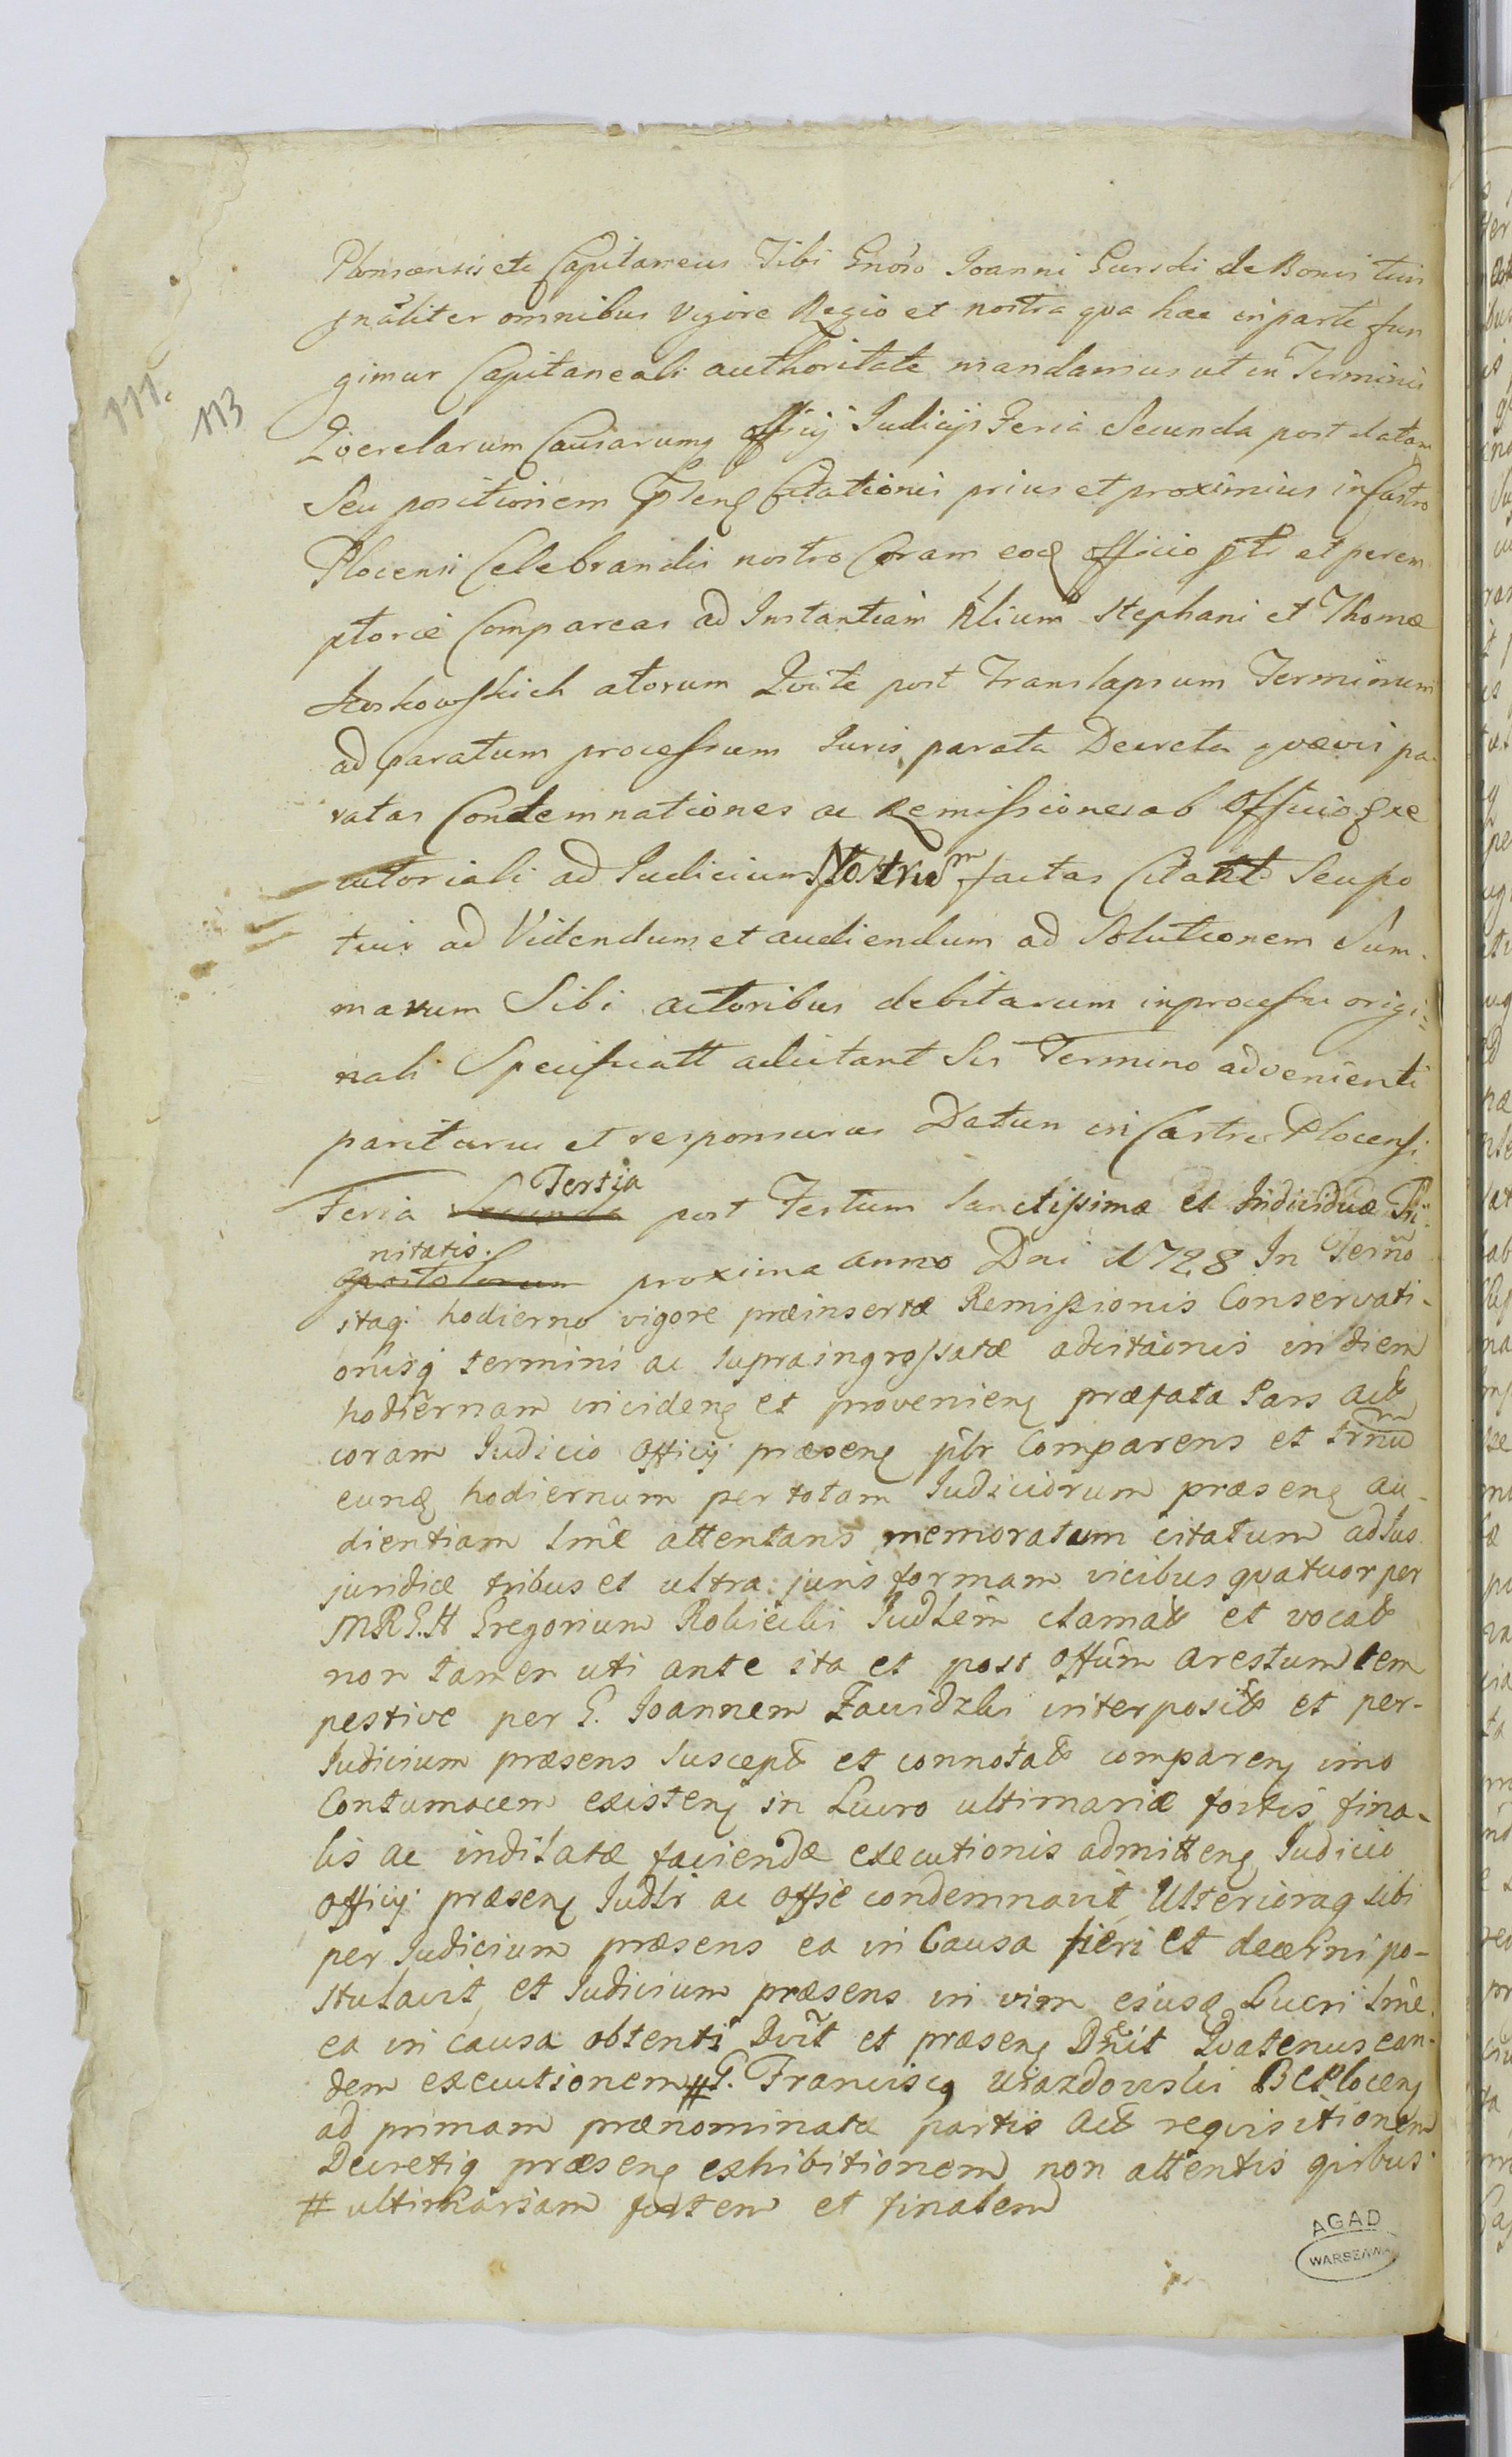 Plonscensis etc Capitaneus Tibi Gnoso Joanni Gurski de Bonis tuis
gnāliter omnibus vigore Regio et nostra qua hac in parte fun
gimur Capitaneali authoritate mandamus ut in Terminis
Qverelarum Causarumq Officij Judicijs Feria Secunda post datam
Seu positionem Citationis prius et proximius in Castro
Plocensi Celebrandis nostro Coram eoq officio et perem
ptorie Compareas ad Instantiam Stephani et Thomæ
atorum Qvi te post Translapsum Terminum
ad paratum processum Juris, parata Decreta qvævis pa
ratas Condemnationes ac Remissiones ab Officio Exe
cutoriali ad Judicium Nostrum factas Citatt Seu po
tius ad Videndum et audiendum ad Solutionem Sum-
marum Sibi actoribus debitarum in processu origi=
nali Specificatt adcitant Sis Termino advenienti
pariturus et responsurus Datum in Castro Plocensi
Feria Secunda Tertia post Festum Sanctissimæ et Individuæ Tri
apostolorum nitatis. proxima anno Dni 1728 In Termo
itaq hodierno vigore præinsertæ Remissionis Conservati-
onisq termini ac supraingrossatæ adcitaonis in diem
hodiernam incideng et provenieng præfata Pars act
coram Judicio Officij præseng pltr Comparens et trnum
eung hodiernum per totam Judiciorum præseng au-
dientiam lme attentans memoratum citatum ad Jus
juridice tribus et ultra juris formam vicibus quatuor per
MRGH Gregorium Robiecki Judlem clamat et vocat
non tamen uti ante ita et post Offum arestum tem
pestive per G. Joannem Zawidzki interposit et per-
Judicium præsens suscept et connotat compareng imo
Contumacem existeng in Lucro ultimariæ fortis fina-
lis ac indilatæ faciendæ executionis admitteng Judicio
Officij præseng Judlr ac Offse condemnavit Ulterioraq sibi
per Judicium præsens ea in Causa fieri et decerni po-
stulavit, et Judicium præsens in vim ejusq Lucri lme
ea in causa obtenti Dvit et præseng Drnit Qvatenus ean-
dem executionem # G. Franciscq Uiazdowski BCPloceng
ad primam prænominatæ partis act reqvisitionem
Decretiq præseng exhibitionem non attentis qvibus
# ultimariam fortem et finalem
111.
113
AGAD
WARSZAWA